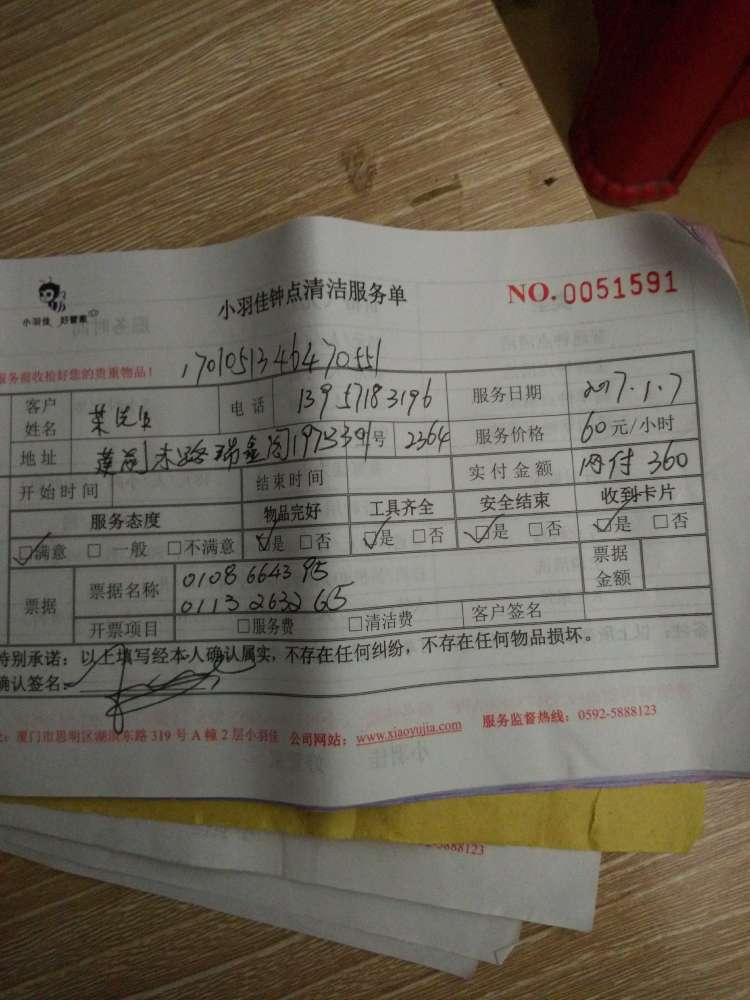 小羽佳 好管家
小羽佳钟点清洁服务单
NO.0051591
服务前收检好您的贵重物品!
1701051346470551
客户姓名 叶先生 电话 13957183196 服务日期 2017.1.7
地址 莲前 路瑞金阁 号 2364 服务价格 60元/小时
开始时间 结束时间 实付金额 网付 360
服务态度 物品完好 工具齐全 安全结束 收到卡片
☑满意 □一般 □不满意 ☑是 □否 ☑是 □否 ☑是 □否 ☑是 □否
票据 票据名称 0108 6643 95 票据金额
0113 2632 65
开票项目 □服务费 □清洁费 客户签名
特别承诺:以上填写经本人确认属实,不存在任何纠纷,不存在任何物品损坏。
确认签名:
厦门市思明区湖滨东路319号A幢2层小羽佳 公司网站:www.xiaoyujia.com 服务监督热线:0592-5888123
5888123